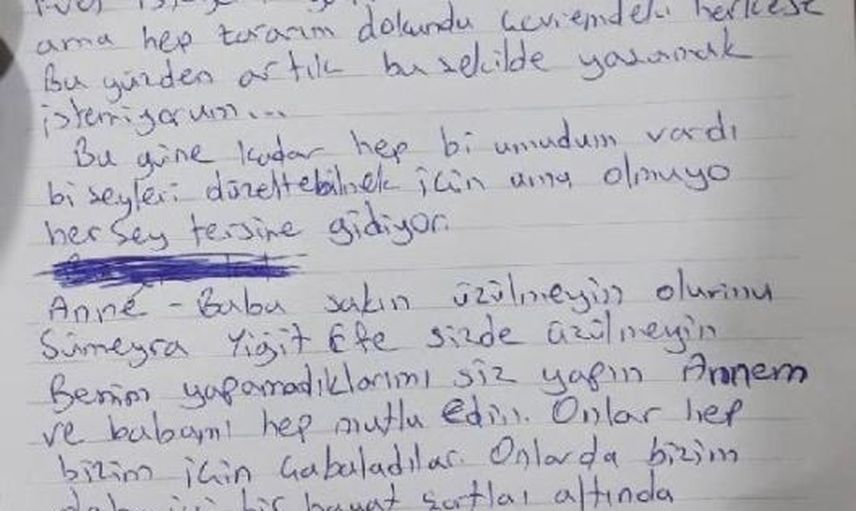 ama hep zararım dokundu çevremdeki herkese
Bu yüzden artık bu şekilde yaşamak
istemiyorum...
Bu güne kadar hep bi umudum vardı
bi şeyleri düzeltebilmek için ama olmuyo
herşey tersine gidiyor.
Anne - Baba sakın üzülmeyin olurmu
Sümeyra Yiğit Efe sizde üzülmeyin
Benim yapamadıklarımı siz yapın Annem
ve babamı hep mutlu edin. Onlar hep
bizim için çabaladılar. Onlarda bizim
bir hayat şartları altında